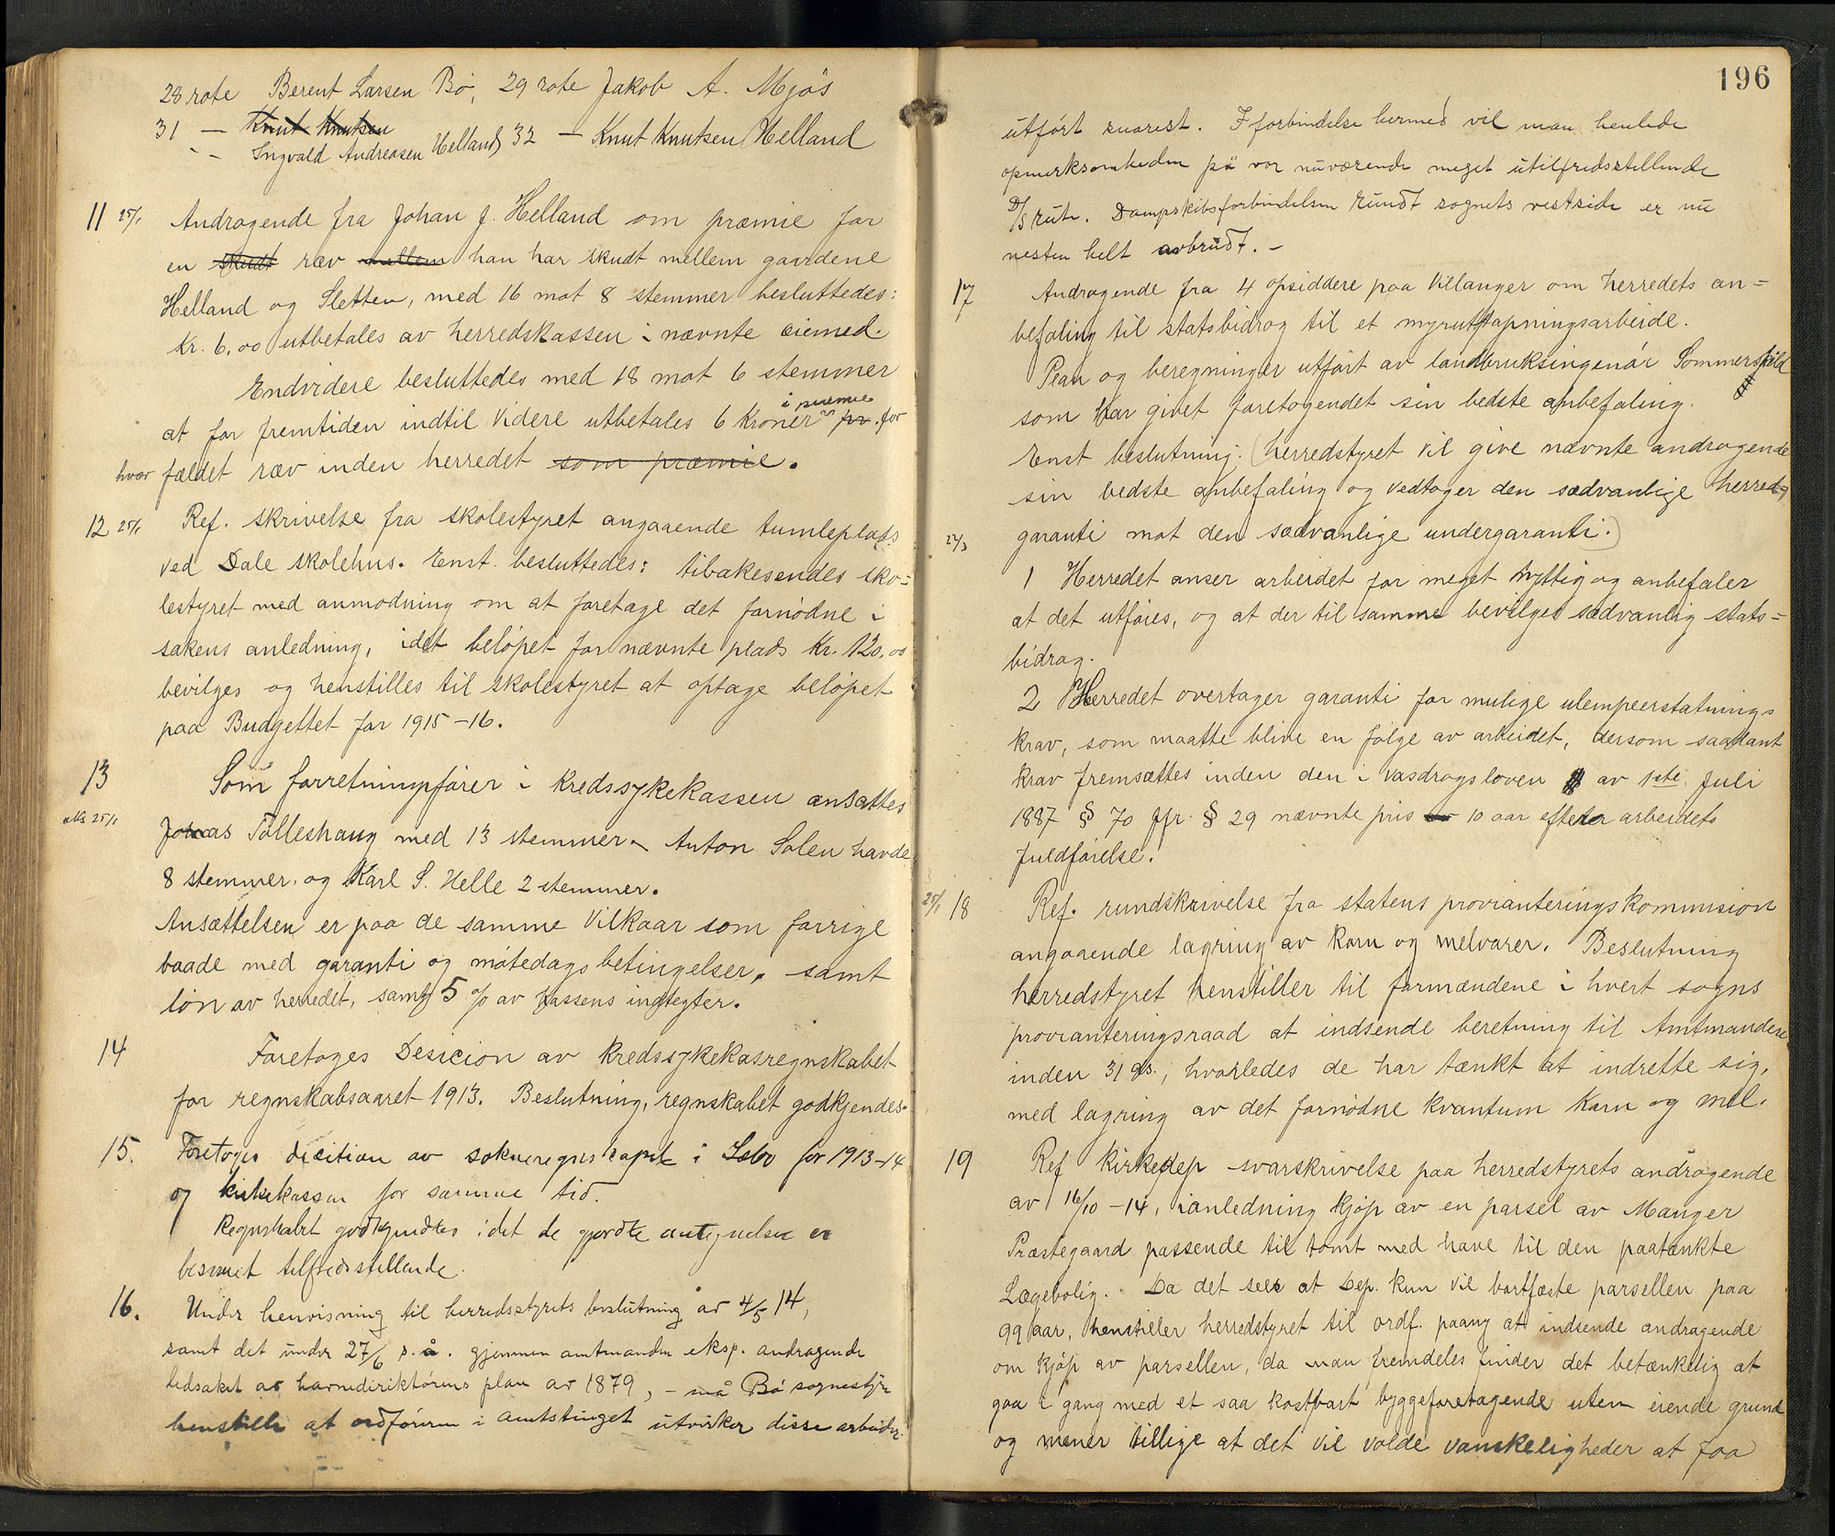 28 rote Berent Larsen Bø, 29 rote Jakob A. Mjøs
31 — Knut Knutsen
- — Ingvald Andreasen Helland, 32 — Knut Knutsen Helland
11 25/1 Andragende fra Johan J. Helland om præmie for
en skudt ræv mellem han har skudt mellem gaardene
Helland og Sletten, med 16 mot 8 stemmer besluttedes:
Kr. 6,00 utbetales av herredskassen i nævnte øiemed.
Endvidere besluttedes med 18 mot 6 stemmer
i præmie
at for fremtiden indtil videre utbetales 6 kroner pr. for
hver fældet ræv inden herredet som præmie.
12 25/1 Ref. skrivelse fra skolestyret angaaende tumleplads
ved Dale skolehus. Enst. besluttedes: tibakesendes sko=
lestyret med anmodning om at foretage det fornødne i
sakens anledning, idet beløpet for nævnte plads Kr. 120,00
bevilges og henstilles til skolestyret at optage beløpet
paa Budgettet for 1915-16.
13 Som forretningsfører i kredssykekassen ansattes
25/1 Johas Tolleshaug med 13 stemmer. Anton Solen havde
8 stemmer, og Karl S. Helle 2 stemmer.
Ansættelsen er paa de samme vilkaar som forrige
baade med garanti og møtedagsbetingelser, samt
løn av herredet, samt 5 % av kassens indtegter.
14 Foretoges Desicion av kredssykekasregnskabet
for regnskabsaaret 1913. Beslutning, regnskabet godkjendes.
15. Foretoges dicition av sokneregnskapet i Sæbø for 1913-14
og kirkekassen for samme tid.
Regnskabet godkjendtes idet de gjordte antegnelser er
besvaret tilfredsstillende.
16. Under henvisning til herredsstyrets beslutning av 4/5 14,
samt det under 27/6 s. å. gjennem amtmanden eksp. andragende
ledsaket av havnedirektørens plan av 1879, - må Bø sognestyre
henstille at ordføreren i amtstinget utvirker disse arbeider
196
utført snarest. I forbindelse hermed vil man henlede
opmerksomheden på vor nuværende meget utilfredsstillende
D/S rute. Dampskibsforbindelsen rundt sognets vestside er nu
nesten helt avbrudt. -
17 Andragende fra 4 opsiddere paa Villanger om herredets an=
befaling til statsbidrag til et myruttapningsarbeide.
Plan og beregninger utført av landbruksingenør Sommerschild
som har givet foretagendet sin bedste anbefaling.
Enst beslutning: (herredstyret vil give nævnte andragende
sin bedste anbefaling og vedtager den sædvanlige herreds
garanti mot den sædvanlige undergaranti.)
1 Herredet anser arbeidet for meget nyttig og anbefaler
at det utføres, og at der til samme bevilges sædvanlig stats=
bidrag.
2 Herredet overtager garanti for mulige ulempeerstatnings
krav, som maatte blive en følge av arbeidet, dersom saadant
krav fremsættes inden den i vasdragsloven av 1ste Juli
1887 § 70 jfr. § 29 nævnte pris 10 aar efter arbeidets
fuldførelse.
25/1 18 Ref. rundskrivelse fra statens provianteringskommision
angaaende lagring av korn og melvarer. Beslutning
herredstyret henstiller til formændene i hvert sogns
provianteringsraad at indsende beretning til Amtmanden
inden 31 ds., hvorledes de har tænkt at indrette sig,
med lagring av det fornødne kvantum korn og mel.
19 Ref kirkedep svarskrivelse paa herredstyrets andragende
av 16/10 -14, i anledning kjøp av en parsel av Manger
Præstegaard passende til tomt med have til den paatænkte
Lægebolig. Da det sees at Dep. kun vil bortfæste parsellen paa
99 aar, henstiler herredstyret til ordf. paany at indsende andragende
om kjøp av parsellen, da man fremdeles finder det betænkelig at
gaa i gang med et saa kostbart byggeforetagende uten eiende grund
og mener tillige at det vil volde vanskeligheder at faa